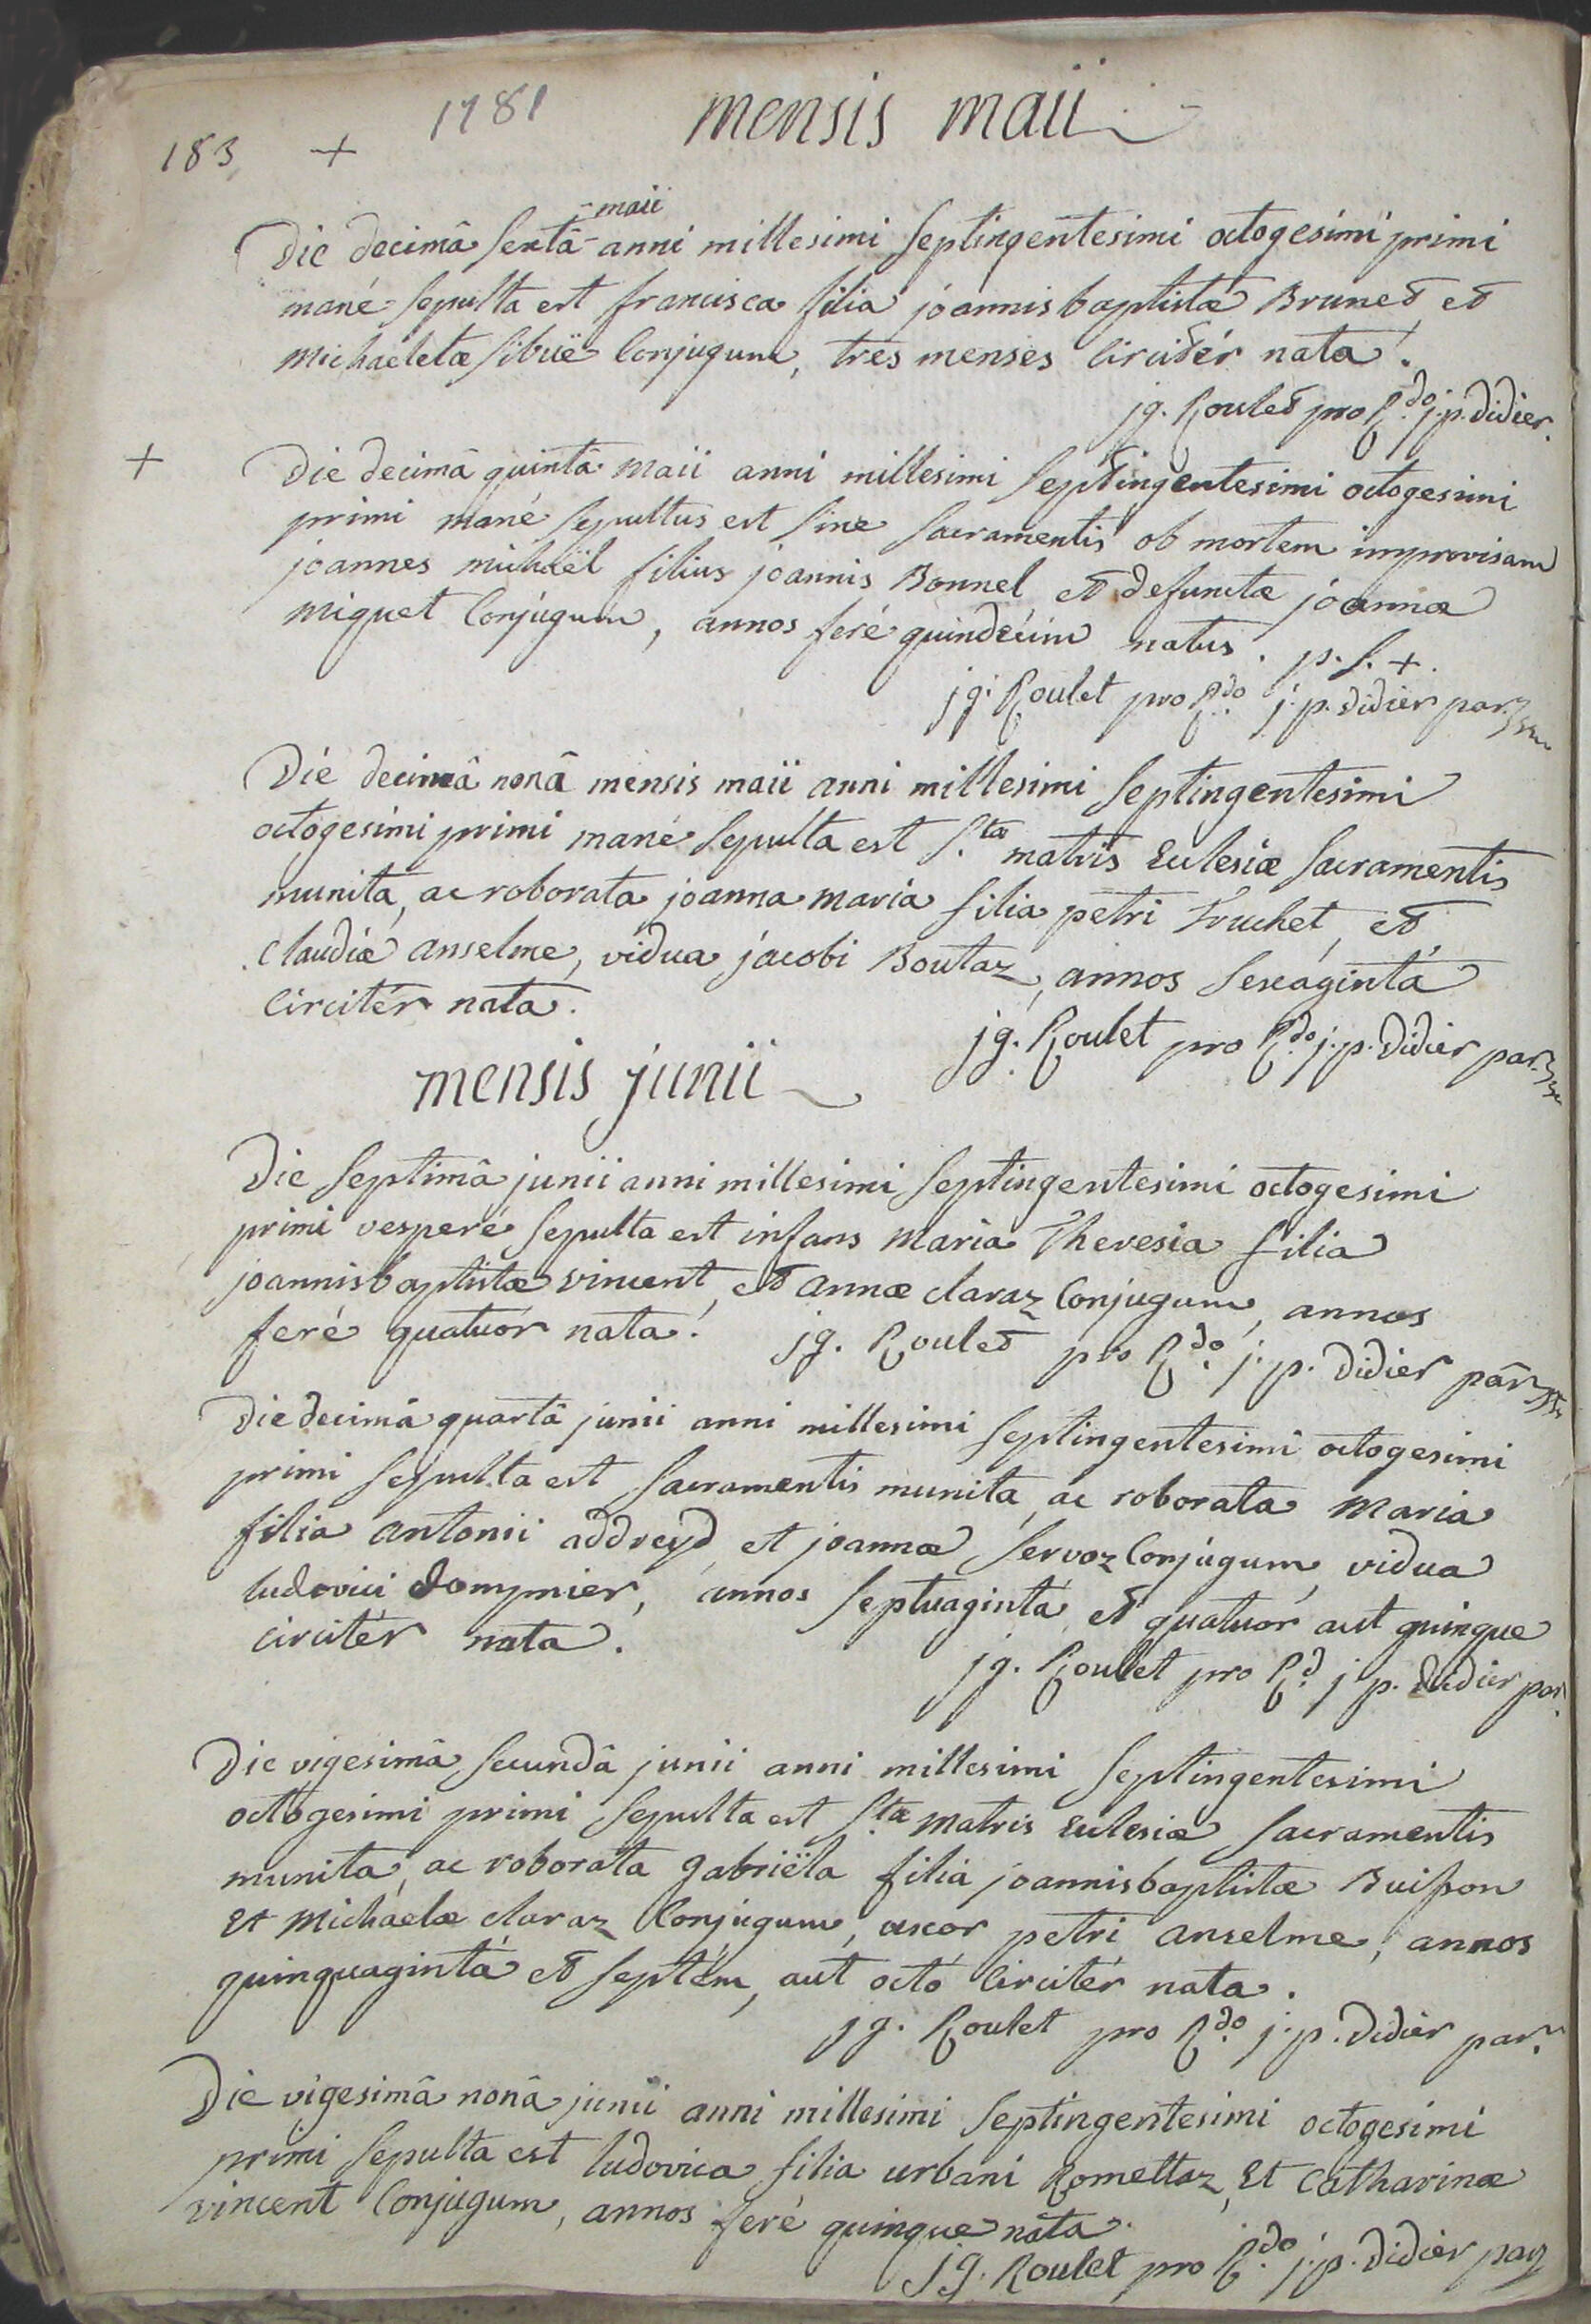 1781
mensis maii
183 +
maii
Die decimâ sextâ anni millesimi septingentesimi octogesimi primi
mané sepulta est francisca filia joannisbaptistæ Brunet, et
Michaeletæ sibuë Conjugum, tres menses Circitér nata.
jg. Roulet pro R.do j. p. Didier.
+ Die decimâ quintâ maii anni millesimi septingentesimi octogesimi
primi mané sepultus est sine sacramentis ob mortem improvisam
joannes michaël filius joannis Bonnel, et defunctæ joannæ
Miguet Conjugum, annos feré quindecim natus. p. s. +.
jg. Roulet pro R.do j. p. Didier par.
Dié decimâ nonâ mensis maii anni millesimi septingentesimi
octogesimi primi mané sepulta est S.tæ matris Eclesiæ sacramentis
munita, ac roborata joanna maria filia petri Truchet, et
Claudiæ anselme, vidua jacobi Boutaz, annos sexáginta
Circitér nata.
jg. Roulet pro R.do j. p. Didier par.
mensis junii
Die septimâ junii anni millesimi septingentesimi octogesimi
primi vesperé sepulta est infans Maria Theresia filia
joannisbaptistæ vincent, et annæ claraz Conjugum, annos
feré quatuór nata.
jg. Roulet pro R.do j. p. Didier par
Die decimâ quartâ junii anni millesimi septingentesimi octogesimi
primi sepulta est sacramentis munita, ac roborata Maria
filia antonii addreyd, et joannæ servoz Conjugum, vidua
ludovici dompnier, annos septuaginta, et quatuór aut quinque
circitér nata.
jg. Roulet pro R.d j p. Didier par.
Die vigesimâ secundâ junii anni millesimi septingentesimi
octogesimi primi sepulta est S.tæ Matris Eclesiæ sacramentis
munita, ac roborata gabriëla filia joannisbaptistæ Buisson
Et Michaelæ claraz Conjugum, uxor petri anselme, annos
quinquagintá et septém, aut octó Circitér nata.
jg. Roulet pro R.do j. p. Didier par.
Die vigesimâ nonâ junii anni millesimi septingentesimi octogesimi
primi sepulta est ludovica filia urbani Romettaz, Et Catharinæ
vincent Conjugum, annos feré quinque nata.
jg. Roulet pro R.do j. p. Didier par